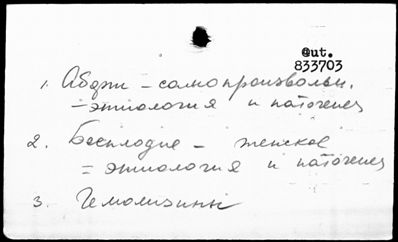 @ut.
833703
1. Аборт – самопроизвольн.
= этиология и патогенез
2. Бесплодие – женское
= этиология и патогенез
3. Гемолизины